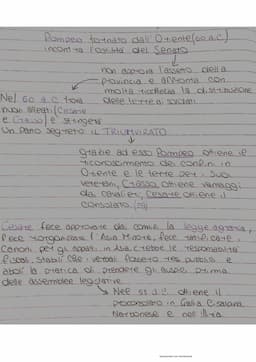 Pompeo tornato dall'Oriente (60 a.C)
incontra l'ostilità del Senato
non approva l'assetto della
provincia e affronta con
molta la distribuzione
delle terre ai soldati
Nel 60 a.C trova
nuovi alleati (Cesare
e Crasso) e stringe
un patto segreto IL TRIUMVIRATO
grazie ad esso Pompeo ottiene il
riconoscimento dei confini in
Oriente e le terre per i suoi
veterani, Crasso ottiene vantaggi
dai cavalieri, Cesare ottiene il
consolato (59)
Cesare fece approvare da comizi la legge agraria,
fece riorganizzare l'Asia Minore, fece
canoni per gli appalti in Asia crebbe le responsabilità
fiscali, stabilì che i verbali fossero resi pubblici e
abolì la pratica di prendere gli auspici prima
delle assemblee legislative
Nel 58 a.C ottiene il
proconsolato in Gallia Cisalpina
Narbonese e nell'Illiria